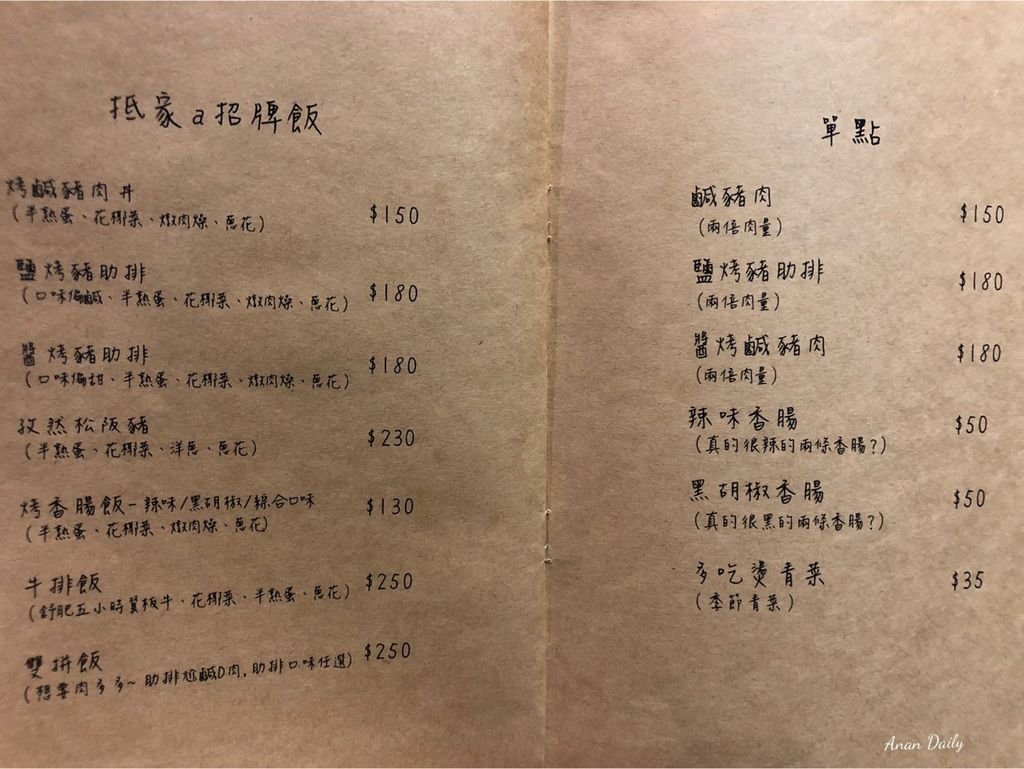 抵家a招牌飯
烤鹹豬肉丼 $150
(半熟蛋、花椰菜、燉肉燥、蔥花)
鹽烤豬肋排 $180
(口味偏鹹、半熟蛋、花椰菜、燉肉燥、蔥花)
醬烤豬肋排 $180
(口味偏甜、半熟蛋、花椰菜、燉肉燥、蔥花)
孜然松阪豬 $230
(半熟蛋、花椰菜、洋蔥、蔥花)
烤香腸飯-辣味/黑胡椒/綜合口味 $130
(半熟蛋、花椰菜、燉肉燥、蔥花)
牛排飯 $250
(舒肥五小時翼板牛、花椰菜、半熟蛋、蔥花)
雙拼飯 $250
(想要肉多多~肋排尬鹹D肉,肋排口味任選)
單點
鹹豬肉 $150
(兩倍肉量)
鹽烤豬肋排 $180
(兩倍肉量)
醬烤鹹豬肉 $180
(兩倍肉量)
辣味香腸 $50
(真的很辣的兩條香腸?)
黑胡椒香腸 $50
(真的很黑的兩條香腸?)
多吃燙青菜 $35
(季節青菜)
Anan Daily